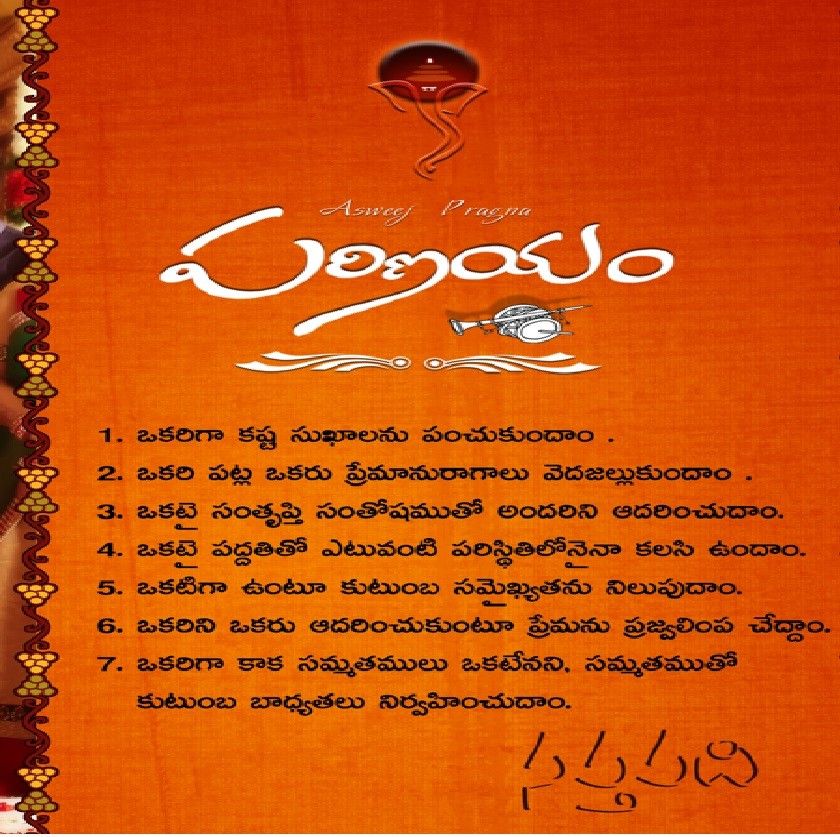 Asweej Pragna
పరిణయం
1. ఒకరిగా కష్ట సుఖాలను పంచుకుందాం .
2. ఒకరి పట్ల ఒకరు ప్రేమానురాగాలు వెదజల్లుకుందాం .
3. ఒకటై సంతృప్తి సంతోషముతో అందరిని ఆదరించుదాం.
4. ఒకటై పద్దతితో ఎటువంటి పరిస్థితిలోనైనా కలసి ఉందాం.
5. ఒకటిగా ఉంటూ కుటుంబ సమైఖ్యతను నిలుపుదాం.
6. ఒకరిని ఒకరు ఆదరించుకుంటూ ప్రేమను ప్రజ్వలింప చేద్దాం.
7. ఒకరిగా కాక సమ్మతములు ఒకటేనని, సమ్మతముతో
కుటుంబ బాధ్యతలు నిర్వహించుదాం.
సప్తపది